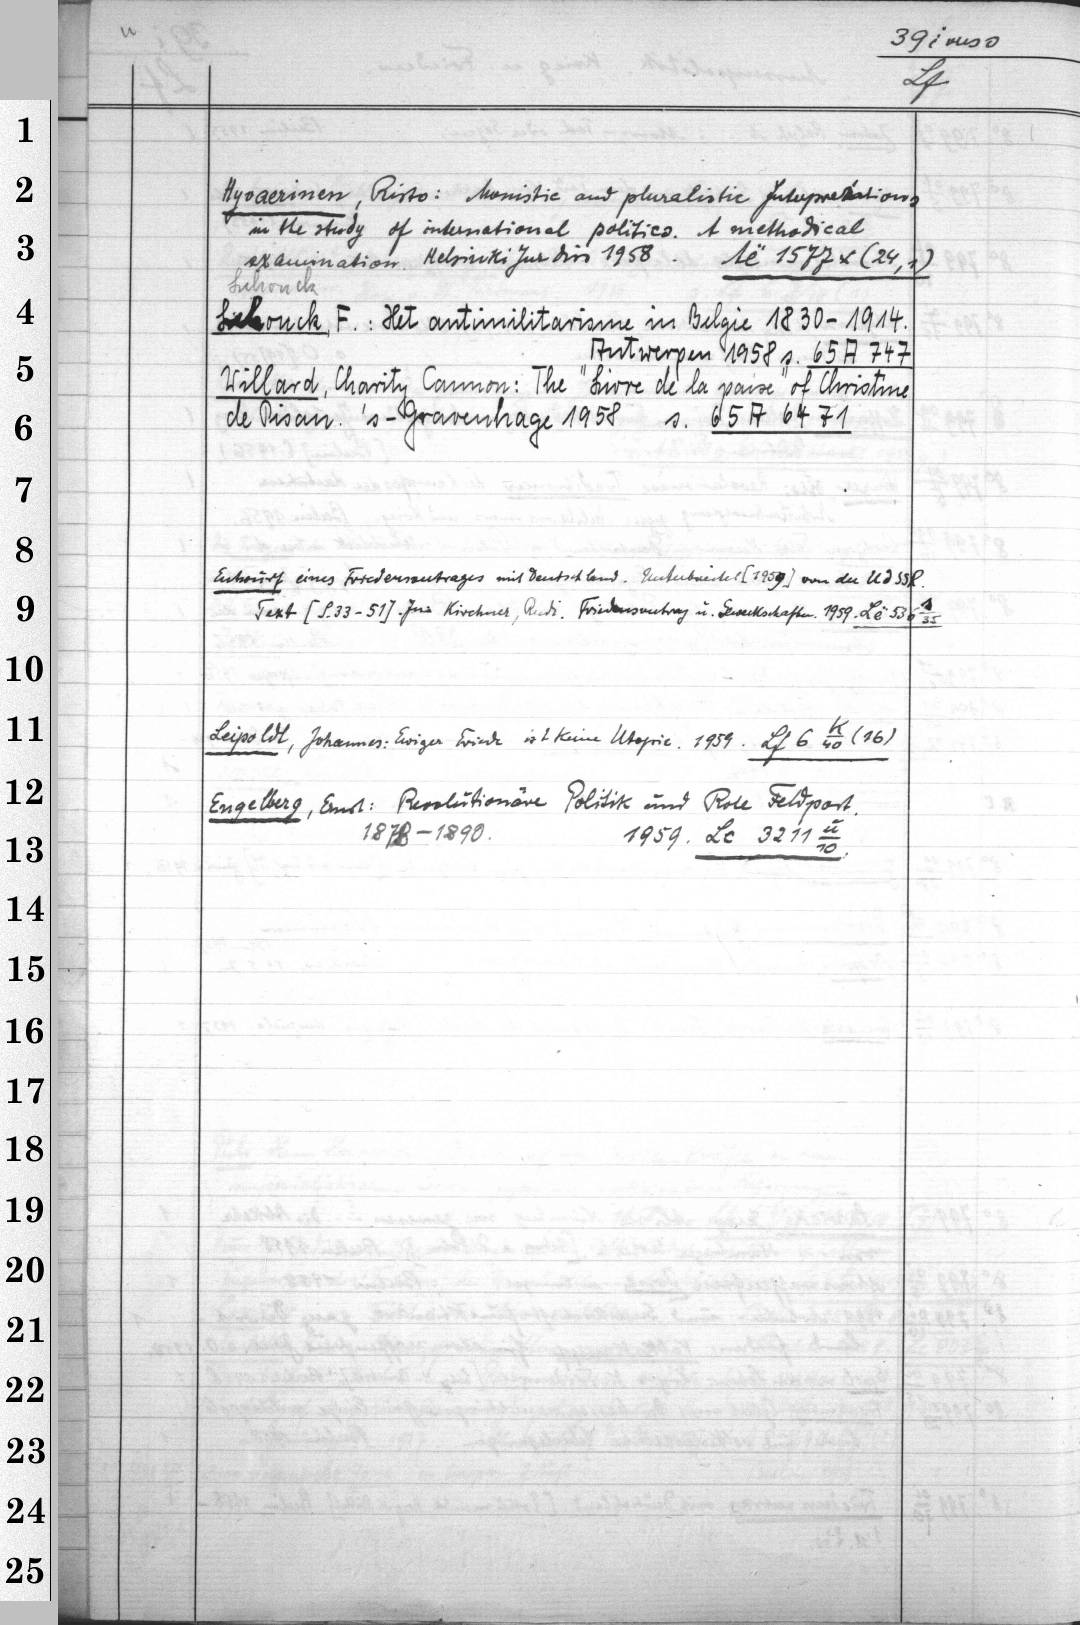 39 i verso
Lf
1
2
Hyvaerinen, Risto: Monistic and pluralistic Interpretations
in the study of international politics. A methodical
3
examination. Helsinki Jur Diss 1958. Aë 1577 x (24,1)
Lehouck
4
Lehouck, F.: Het antimilitarisme in Belgie 1830-1914.
Antwerpen 1958 s. 65 A 747
5
Willard, Charity Cannon: The "Livre de la paix" of Christine
6
de Pisan. 's-Gravenhage 1958 s. 65 A 6471
7
8
Entwurf eines Friedensvertrages mit Deutschland. Unterbreitet [1959] von der UdSSR.
9
Text [S. 33-51]. In: Kirchner, Rudi. Friedensvertrag u. Gewerkschaften. 1959. Lë 536 1/35
10
11
Leipoldt, Johannes: Ewiger Friede ist keine Utopie. 1959. Lf 6 K/40 (16)
12
Engelberg, Ernst: Revolutionäre Politik und Rote Feldpost.
13
1878-1890. 1959. Lc 3211 ü/10.
14
15
16
17
18
19
20
21
22
23
24
25